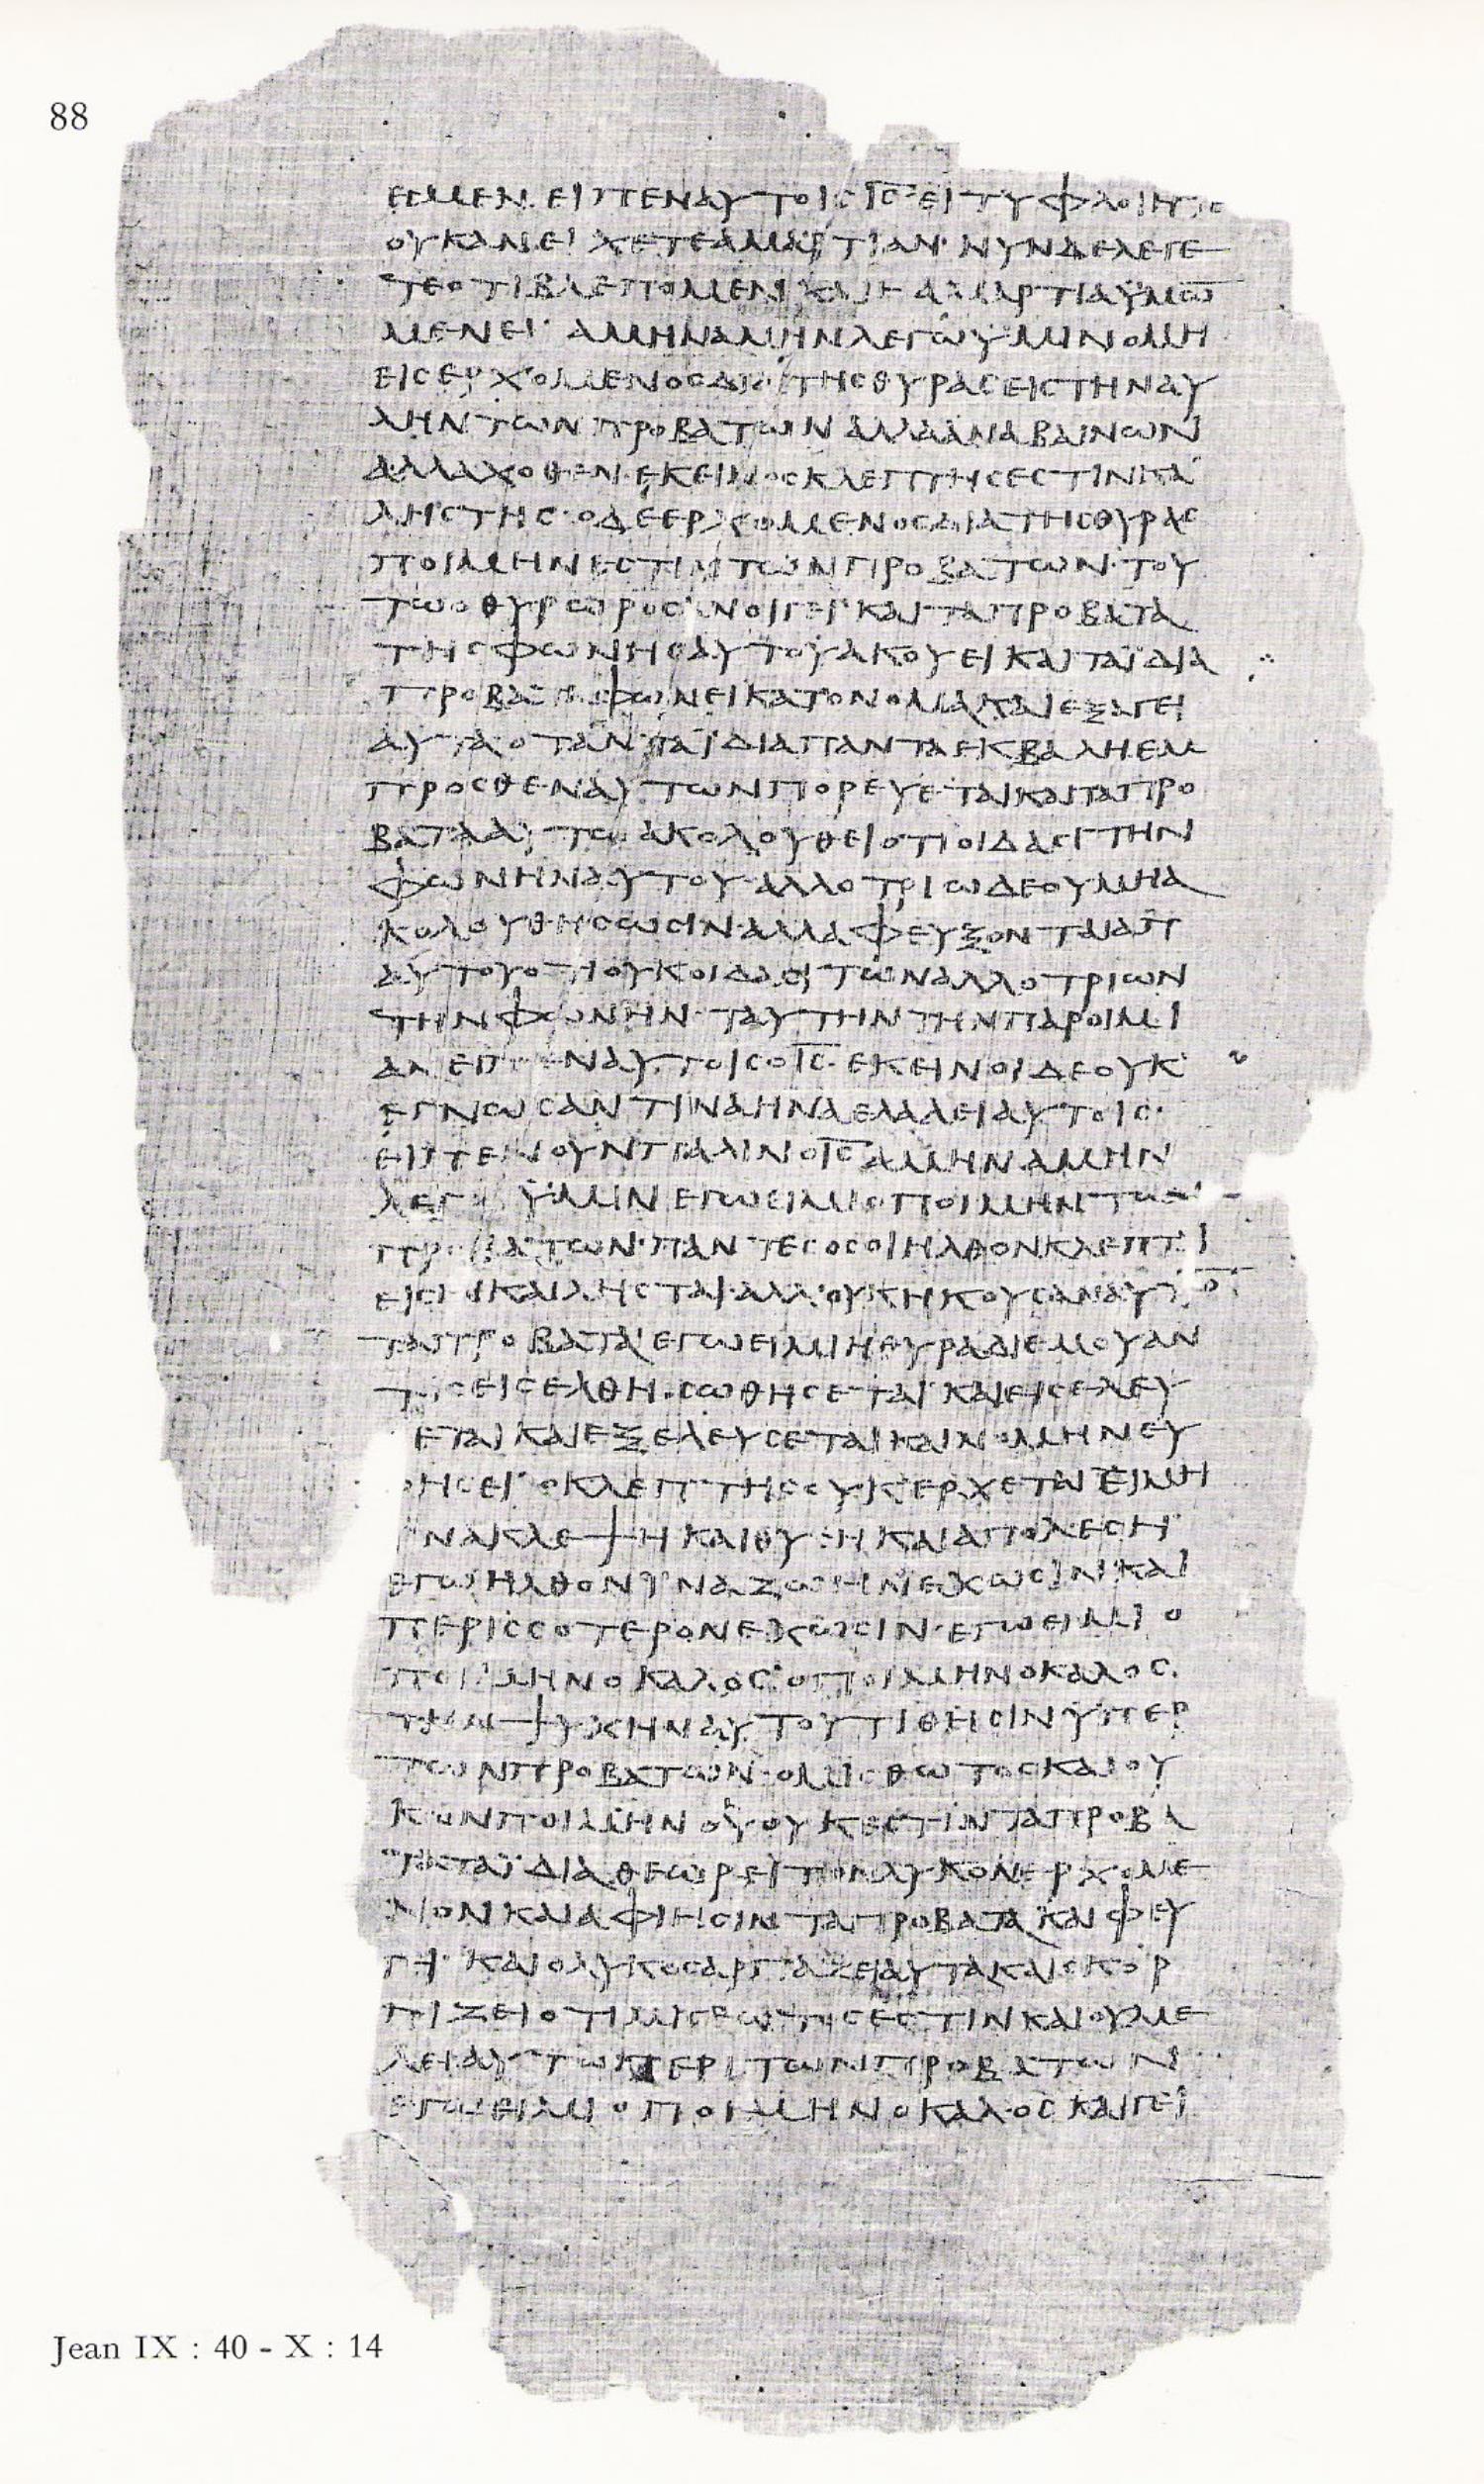 88
ΕΣΜΕΝ· ΕΙΠΕΝ ΑΥΤΟΙΣ ΙΣ· ΕΙ ΤΥΦΛΟΙ ΗΤΕ
ΟΥΚ ΑΝ ΕΙΧΕΤΕ ΑΜΑΡΤΙΑΝ· ΝΥΝ ΔΕ ΛΕΓΕ
ΤΕ ΟΤΙ ΒΛΕΠΟΜΕΝ ΚΑΙ Η ΑΜΑΡΤΙΑ ΫΜΩ̅
ΜΕΝΕΙ· ΑΜΗΝ ΑΜΗΝ ΛΕΓΩ ΫΜΙΝ Ο ΜΗ
ΕΙΣΕΡΧΟΜΕΝΟΣ ΔΙΑ ΤΗΣ ΘΥΡΑΣ ΕΙΣ ΤΗΝ ΑΥ
ΛΗΝ ΤΩΝ ΠΡΟΒΑΤΩΝ ΑΛΛΑ ΑΝΑΒΑΙΝΩΝ
ΑΛΛΑΧΟΘΕΝ ΕΚΕΙΝΟΣ ΚΛΕΠΤΗΣ ΕΣΤΙΝ ΚΑΙ
ΛΗΣΤΗΣ· Ο ΔΕ ΕΡΧΟΜΕΝΟΣ ΔΙΑ ΤΗΣ ΘΥΡΑΣ
ΠΟΙΜΗΝ ΕΣΤΙΝ ΤΩΝ ΠΡΟΒΑΤΩΝ· ΤΟΥ
ΤΩ Ο ΘΥΡΩΡΟΣ ΑΝΟΙΓΕΙ· ΚΑΙ ΤΑ ΠΡΟΒΑΤΑ
ΤΗΣ ΦΩΝΗΣ ΑΥΤΟΥ ΑΚΟΥΕΙ ΚΑΙ ΤΑ ΪΔΙΑ
ΠΡΟΒΑΤΑ ΦΩΝΕΙ ΚΑΤ ΟΝΟΜΑ ΚΑΙ ΕΞΑΓΕΙ
ΑΥΤΑ· ΟΤΑΝ ΤΑ ΪΔΙΑ ΠΑΝΤΑ ΕΚΒΑΛΗ ΕΜ
ΠΡΟΣΘΕΝ ΑΥΤΩΝ ΠΟΡΕΥΕΤΑΙ ΚΑΙ ΤΑ ΠΡΟ
ΒΑΤΑ ΑΥΤΩ ΑΚΟΛΟΥΘΕΙ ΟΤΙ ΟΙΔΑΣΙ ΤΗΝ
ΦΩΝΗΝ ΑΥΤΟΥ· ΑΛΛΟΤΡΙΩ ΔΕ ΟΥ ΜΗ Α
ΚΟΛΟΥΘΗΣΩΣΙΝ· ΑΛΛΑ ΦΕΥΞΟΝΤΑΙ ΑΠ
ΑΥΤΟΥ ΟΤΙ ΟΥΚ ΟΙΔΑΣΙ ΤΩΝ ΑΛΛΟΤΡΙΩΝ
ΤΗΝ ΦΩΝΗΝ· ΤΑΥΤΗΝ ΤΗΝ ΠΑΡΟΙΜΙ
ΑΝ ΕΙΠΕΝ ΑΥΤΟΙΣ Ο ΙΣ· ΕΚΕΙΝΟΙ ΔΕ ΟΥΚ
ΕΓΝΩΣΑΝ ΤΙΝΑ ΗΝ Α ΕΛΑΛΕΙ ΑΥΤΟΙΣ·
ΕΙΠΕΝ ΟΥΝ ΠΑΛΙΝ Ο ΙΣ ΑΜΗΝ ΑΜΗΝ
ΛΕΓΩ ΫΜΙΝ ΕΓΩ ΕΙΜΙ Ο ΠΟΙΜΗΝ ΤΩΝ
ΠΡΟΒΑΤΩΝ· ΠΑΝΤΕΣ ΟΣΟΙ ΗΛΘΟΝ ΚΛΕΠΤΑΙ
ΕΙΣΙΝ ΚΑΙ ΛΗΣΤΑΙ· ΑΛΛ ΟΥΚ ΗΚΟΥΣΑΝ ΑΥΤΩ̅
ΤΑ ΠΡΟΒΑΤΑ· ΕΓΩ ΕΙΜΙ Η ΘΥΡΑ ΔΙ ΕΜΟΥ ΑΝ
ΤΙΣ ΕΙΣΕΛΘΗ· ΣΩΘΗΣΕΤΑΙ· ΚΑΙ ΕΙΣΕΛΕΥ
ΕΤΑΙ ΚΑΙ ΕΞΕΛΕΥΣΕΤΑΙ ΚΑΙ ΝΟΜΗΝ ΕΥ
ΡΗΣΕΙ· Ο ΚΛΕΠΤΗΣ ΟΥΚ ΕΡΧΕΤΑΙ ΕΙ ΜΗ
ΙΝΑ ΚΛΕΨΗ ΚΑΙ ΘΥΣΗ ΚΑΙ ΑΠΟΛΕΣΗ·
ΕΓΩ ΗΛΘΟΝ ΪΝΑ ΖΩΗΝ ΕΧΩΣΙΝ ΚΑΙ
ΠΕΡΙΣΣΟΤΕΡΟΝ ΕΧΩΣΙΝ· ΕΓΩ ΕΙΜΙ Ο
ΠΟΙΜΗΝ Ο ΚΑΛΟΣ· Ο ΠΟΙΜΗΝ Ο ΚΑΛΟΣ
ΤΗΝ ΨΥΧΗΝ ΑΥΤΟΥ ΤΙΘΗΣΙΝ ΫΠΕΡ
ΤΩΝ ΠΡΟΒΑΤΩΝ· Ο ΜΙΣΘΩΤΟΣ ΚΑΙ ΟΥ
Κ ΩΝ ΠΟΙΜΗΝ ΟΥ ΟΥΚ ΕΣΤΙΝ ΤΑ ΠΡΟΒΑ
ΤΑ ΤΑ ΪΔΙΑ ΘΕΩΡΕΙ ΤΟΝ ΛΥΚΟΝ ΕΡΧΟΜΕ
ΝΟΝ ΚΑΙ ΑΦΙΗΣΙΝ ΤΑ ΠΡΟΒΑΤΑ ΚΑΙ ΦΕΥ
ΓΕΙ· ΚΑΙ Ο ΛΥΚΟΣ ΑΡΠΑΖΕΙ ΑΥΤΑ ΚΑΙ ΣΚΟΡ
ΠΙΖΕΙ ΟΤΙ ΜΙΣΘΩΤΟΣ ΕΣΤΙΝ ΚΑΙ ΟΥ ΜΕ
ΛΕΙ ΑΥΤΩ ΠΕΡΙ ΤΩΝ ΠΡΟΒΑΤΩΝ
ΕΓΩ ΕΙΜΙ Ο ΠΟΙΜΗΝ Ο ΚΑΛΟΣ ΚΑΙ ΓΕΙ
Jean IX : 40 - X : 14